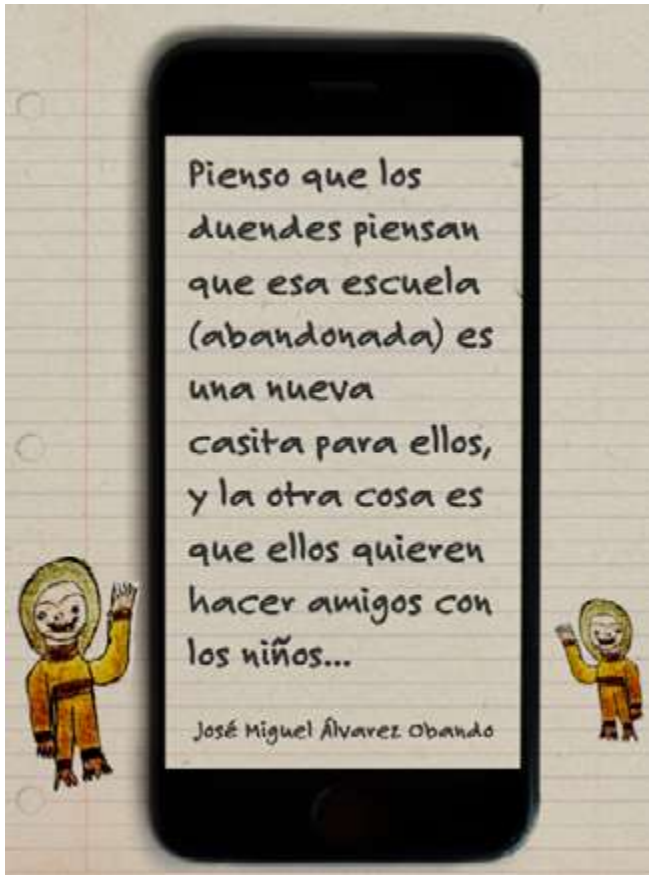 Pienso que los
duendes piensan
que esa escuela
(abandonada) es
una nueva
casita para ellos,
y la otra cosa es
que ellos quieren
hacer amigos con
los niños...
José Miguel Álvarez Obando